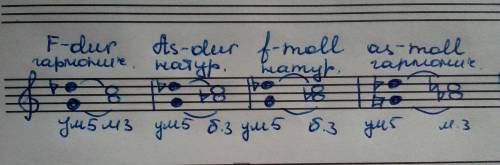 F-dur As-dur f-moll as-moll
гармонич. натур. натур. гармонич.
ум5 м3 ум5 б.3 ум5 б.3 ум5 м.3